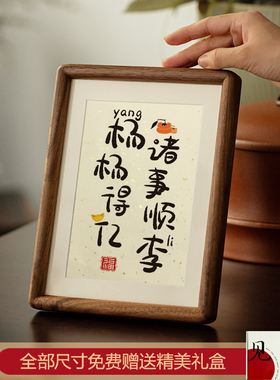 诸事顺李
li
yang
杨杨得亿
福
全部尺寸免费赠送精美礼盒
见